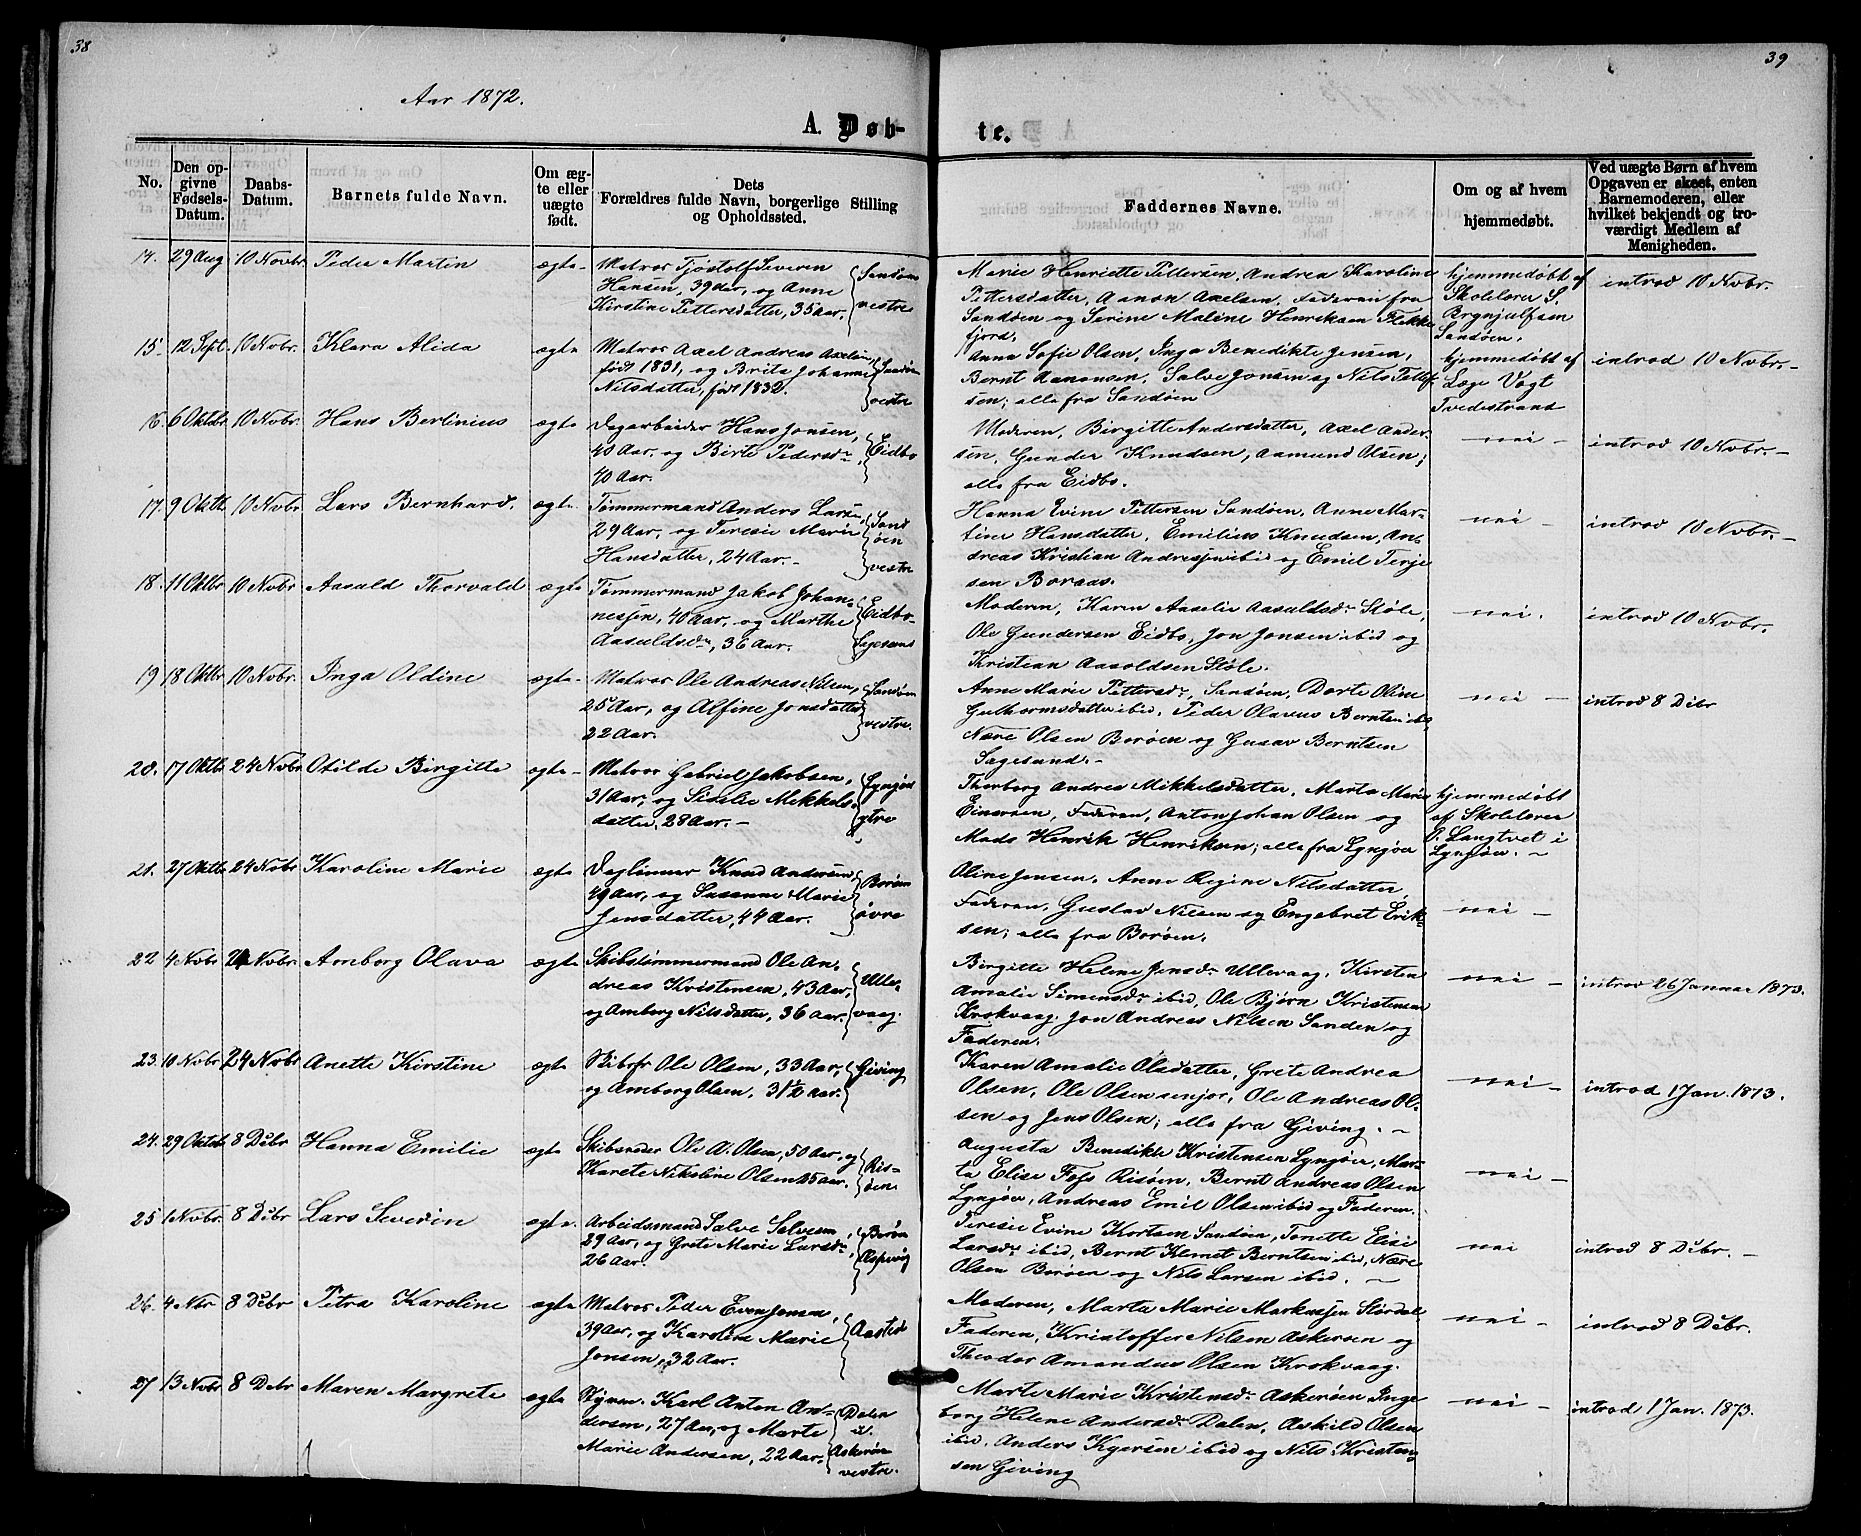 38
39
Aar 1872.
A. Døb-
te.
No.
Den op-
givne
Fødsels-
Datum.
Daabs-
Datum.
Barnets fulde Navn.
Om æg-
te eller
uægte
født.
Dets
Forældres fulde Navn, borgerlige Stilling
og Opholdssted.
Faddernes Navne.
Om og af hvem
hjemmedøbt.
Ved uægte Børn af hvem
Opgaven er skeet, enten
Barnemoderen, eller
hvilket bekjendt og tro-
værdigt Medlem af
Menigheden.
14. 29 Aug 10 Novbr Peder Martin ægte Matros Tjøstolf Severin
Hansen, 39 Aar, og Anne
Kirstine Pettersdatter, 35 Aar.
Sandøen
vestre
Marie Henriette Pettersen, Andrea Karoline
Pettersdatter, Aanon Axelsen, Faderen fra
Sandøen og Serine Maline Henriksen Flekke
fjord.
hjemmedøbt af
Skolelærer S.
Brynjulfsen
Sandøen.
introd 10 Novbr.
15. 12 Sept. 10 Novbr. Klara Alida ægte Matros Axel Andreas Axelsen
født 1831, og Brita Johanne
Nilsdatter, født 1832.
Sandøen
vestre
Anna Sofie Olsen, Inga Benedikte Jensen,
Bernt Aanonsen, Salve Jonsen og Nils Petter
sen; alle fra Sandøen
hjemmedøbt af
Læge Vogt
Tvedestrand
introd 10 Novbr.-
16. 6 Oktbr 10 Novbr. Hans Berlinius ægte Dagarbeider Hans Jonsen,
40 Aar, og Birte Pedersdr,
40 Aar.
Eidbo
Moderen, Birgitte Andersdatter, Axel Ander-
sen, Gunder Knudsen, Aamund Olsen;
alle fra Eidbo.
nei - introd 10 Novbr.-
17. 9 Oktb 10 Novbr Lars Bernhard. ægte Tømmermand Anders Larsen,
29 Aar, og Teresie Marie
Hansdatter, 24 Aar.-
Sand
øen
vestre
Hanna Evine Pettersen Sandøen, Anne Mar-
tine Hansdatter, Emilius Knudsen, An-
dreas Kristian Andresen ibid og Emil Terje
sen Boraas.
nei - introd 10 Novbr.-
18. 11 Oktbr 10 Novbr Aasuld Thorvald ægte Tømmermand Jakob Johan-
nessen, 40 Aar, og Marthe
Aasuldsdr, 36 Aar.
Eidbo-
Sagesund
Moderen, Karen Aaselie Aasuldsdr Støle,
Ole Gundersen Eidbo, Jon Jonsen ibid og
Kristian Aasoldsen Støle.
nei. introd 10 Novbr.
19 18 Oktbr 10 Novbr. Inga Oldine ægte Matros Ole Andreas Nilsen,
25 Aar, og Alfine Jonsdatter
22 Aar.
Sandøen
vestre.
Anne Marie Pettersdr, Sandøen, Dorte Oline
Guthormsdatter ibid, Peder Olavus Berntsen ibid,
Nære Olsen Borøen og Gusav Berntsen
Sagesund.-
nei - introd 8 Dcbr
20. 17 Oktb 24 Novbr Otilde Birgitte ægte- Matros Gabriel Jakobsen,
31 Aar, og Siselie Mikkels-
datter, 28 Aar.-
Lyngøen
ytre
Thorborg Andrea Mikkelsdatter, Marta Marie
Einersen, Faderen, Anton Johan Olsen og
Mads Henrik Henriksen; alle fra Lyngøer
hjemmedøbt
af Skolelærer
O. Langtvet i
Lyngøer.-
21. 27 Oktb 24 Novbr Karoline Marie ægte Daglønner Knud Andersen
49 Aar, og Susanne Marie
Jensdatter, 44 Aar.
Borøen
øvre
Oline Jensen, Anne Regine Nilsdatter,
Faderen, Gustav Nilsen og Engebret Erik-
sen; alle fra Borøen.
nei -
22 4 Novbr 24 Novbr. Amborg Olava ægte Skibstømmermand Ole An-
dreas Kristensen, 43 Aar,
og Amborg Nilsdatter, 36 Aar.
Ulle-
vaag.
Birgitte Helene Jensdr Ullevaag, Kirsten
Amalie Simensdr ibid, Ole Bjørn Kristensen
Krokvaag, Jon Andreas Nilsen Sanden og
Faderen.
nei - introd 26 Januar 1873.
23. 10 Novbr 24 Novbr Anette Kirstine ægte Skibsfr Ole Olsen, 33 Aar,
og Amborg Olsen, 31½ aar.
Giving
Karen Amalie Olsdatter, Grete Andrea
Olsen, Ole Olsen senjor, Ole Andreas Ol-
sen og Jens Olsen; alle fra Giving.-
nei - introd 1 Jan. 1873.
24. 29 Oktob 8 Dcbr Hanna Emilie ægte Skibsreder Ole A. Olsen, 50 Aar, og
Karete Nikoline Olsen 45 aar.
Ris-
øen
Augusta Benedikte Kristensen Lyngøer, Mar-
ta Elise Foss Risøen, Bernt Andreas Olsen
Lyngøer, Andreas Emil Olsen ibid og Faderen.
nei -
25 1 Novbr. 8 Dcbr Lars Severin ægte. Arbeidsmand Salve Salvesen,
29 Aar, og Grete Marie Larsdr,
26 Aar.
Borøen
Aspevig
Teresie Evine Kortsen Sandøen, Tonette Elise
Larsdr ibid, Bernt Klemet Berntsen ibid, Nære
Olsen Borøen og Nils Larsen ibid.-
nei introd 8 Dcbr.-
26. 4 Nbr 8 Dcbr Petra Karoline ægte Matros Peder Even Jensen,
39 Aar, og Karoline Marie
Jonsen, 32 Aar.
Aasted
Moderen, Marta Marie Markussen Størdal
Faderen, Kristoffer Nilsen Askerøen og
Theodor Amandus Olsen Krokvaag.
nei - introd 8 Dcbr.
27 13 Novbr 8 Dcbr Maren Margrete ægte Styrm. Karl Anton An-
dersen, 27 Aar, og Marte
Marie Andersen, 22 Aar.
Dalen
i
Askerøen
vestre.
Marte Marie Kristensdr Askerøen Inge-
borg Helene Andersdr Dalen, Askild Olsen
ibid, Anders Kjørsen ibid og Nils Kristen-
sen Giving
nei - introd 1 Jan. 1873.